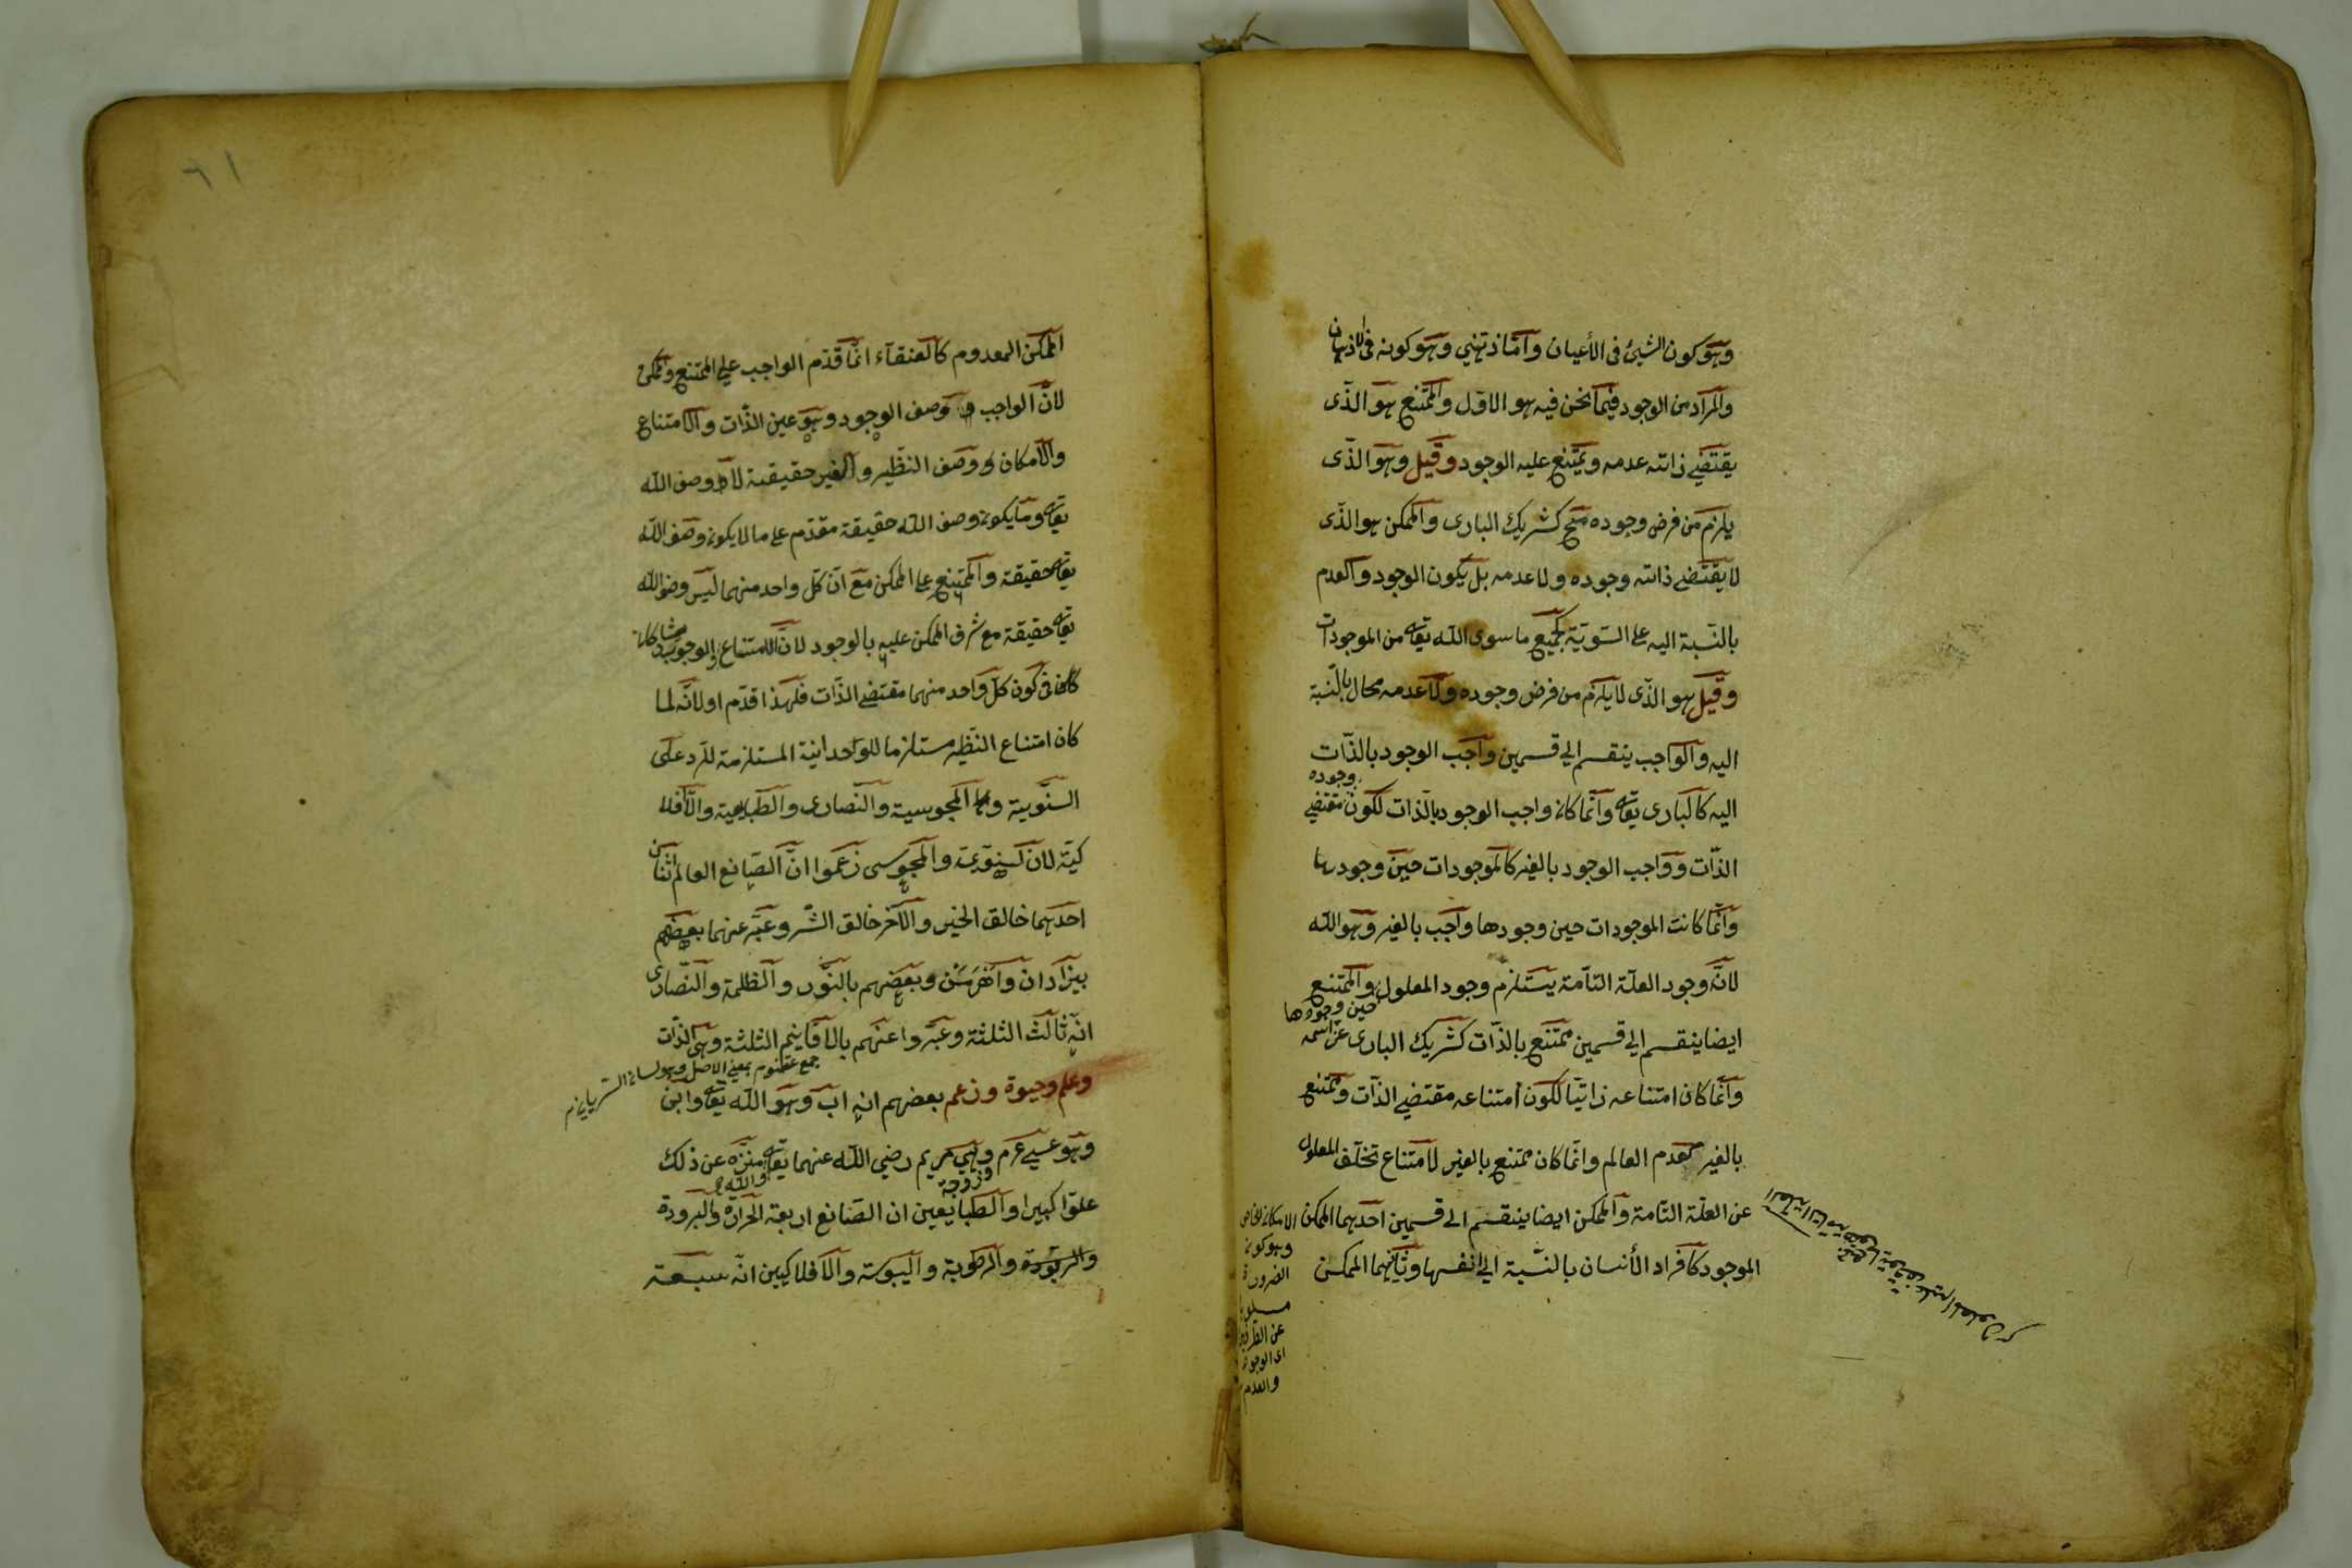 وهو كون الشيئ فى الأعيان وامّا ذهني وهو كونه فى الاذهان
والمراد من الوجود فيما نحن فيه هو الاوّل والممتنع هو الذّى
يقتضي ذاته عدمه ويمتنع عليه الوجود وقيل وهو الذّى
يلزم من فرض وجوده مح كشريك البارى والممكن هو الذّى
لا يقتضي ذاته وجوده ولا عدمه بل يكون الوجود والعدم
بالنّسبة اليه على السّويّة كجميع ما سوى اللّه تعالى من الموجودات
وقيل هو الذّى لا يلزم من فرض وجوده ولا عدمه محال بالنّسبة
اليه والواجب ينقسم الي قسمين واجب الوجود بالذّات
اليه كالبارى تعالى وانّما كان واجب الوجود بالذّات لكون وجوده مقتضي
الذّات وواجب الوجود بالغير كالموجودات حين وجودها
وانّما كانت الموجودات حين وجودها واجب بالغير وهو اللّه
لانّ وجود العلّة التّامّة يستلزم وجود المعلول والممتنع
حين وجودها
ايضا ينقسم الي قسمين ممتنع بالذّات كشريك البارى عزّ اسمه
وانّما كان امتناعه ذاتيّا لكون امتناعه مقتضي الذّات وممتنع
بالغير كعدم العالم وانّما كان ممتنع بالغير لامتناع تخلّف المعلول
عن العلّة التّامة والممكن ايضا ينقسم الى قسمين احدهما الممكن
الموجود كافراد الأنسان بالنّسبة الي انفسها وثانيهما الممكن
الامكان الخاص
وهو كون
الضرورة
مسلوبا
عن الطرفين
اى الوجود
والعدم
العلة التامة
الممكن المعدوم كالعنقآء انّما قدّم الواجب علي الممتنع وممكن
لانّ الواجب وصف الوجود وهو عين الذّات والامتناع
والامكان وصف النّظير والغير حقيقة لا وصف اللّه
تعالى وما يكون وصف اللّه حقيقة مقدّم على ما لا يكون وصف اللّه
تعالى حقيقة والممتنع على الممكن مع انّ كلّ واحد منهما ليس وصف اللّه
تعالى حقيقة مع شرف الممكن عليه بالوجود لانّ للامتناع والوجوب مشاركة
فى كون كلّ واحد منهما مقتضي الذّات فلهذا قدّم او لانّه لما
كان امتناع النّظير مستلزما للواحدانية المستلزمة للرّد على
السنّوية والمجوسية والنّصارى والطّبايعية والافلا
كيّة لان السنوية والمجوسى زعموا انّ الصّانع العالم اثنان
احدهما خالق الخير والآخر خالق الشّر وعبّر عنهما بعضهم
بيزادان واهرمن وبعضهم بالنّور والظلمة والنّصارى
انّه ثالث الثلثة وعبّروا عنهم بالاقانيم الثلثة وهى الذّات
جمع اقنوم بمعنى الاصل وهو لسان السّريانى
وعلم وحيوة وزعم بعضهم انه اب وهو اللّه تعالى وابن
وهو عيسي ع م وهي مريم رضي اللّه عنهما تعالى منزّه عن ذلك
وزوجة
واللّه
علوّا كبيرا والطبايعين ان الصّانع اربعة الحرارة والبرودة
والرطوبة واليبوسة والافلاكيين انّه سبعة
٦١